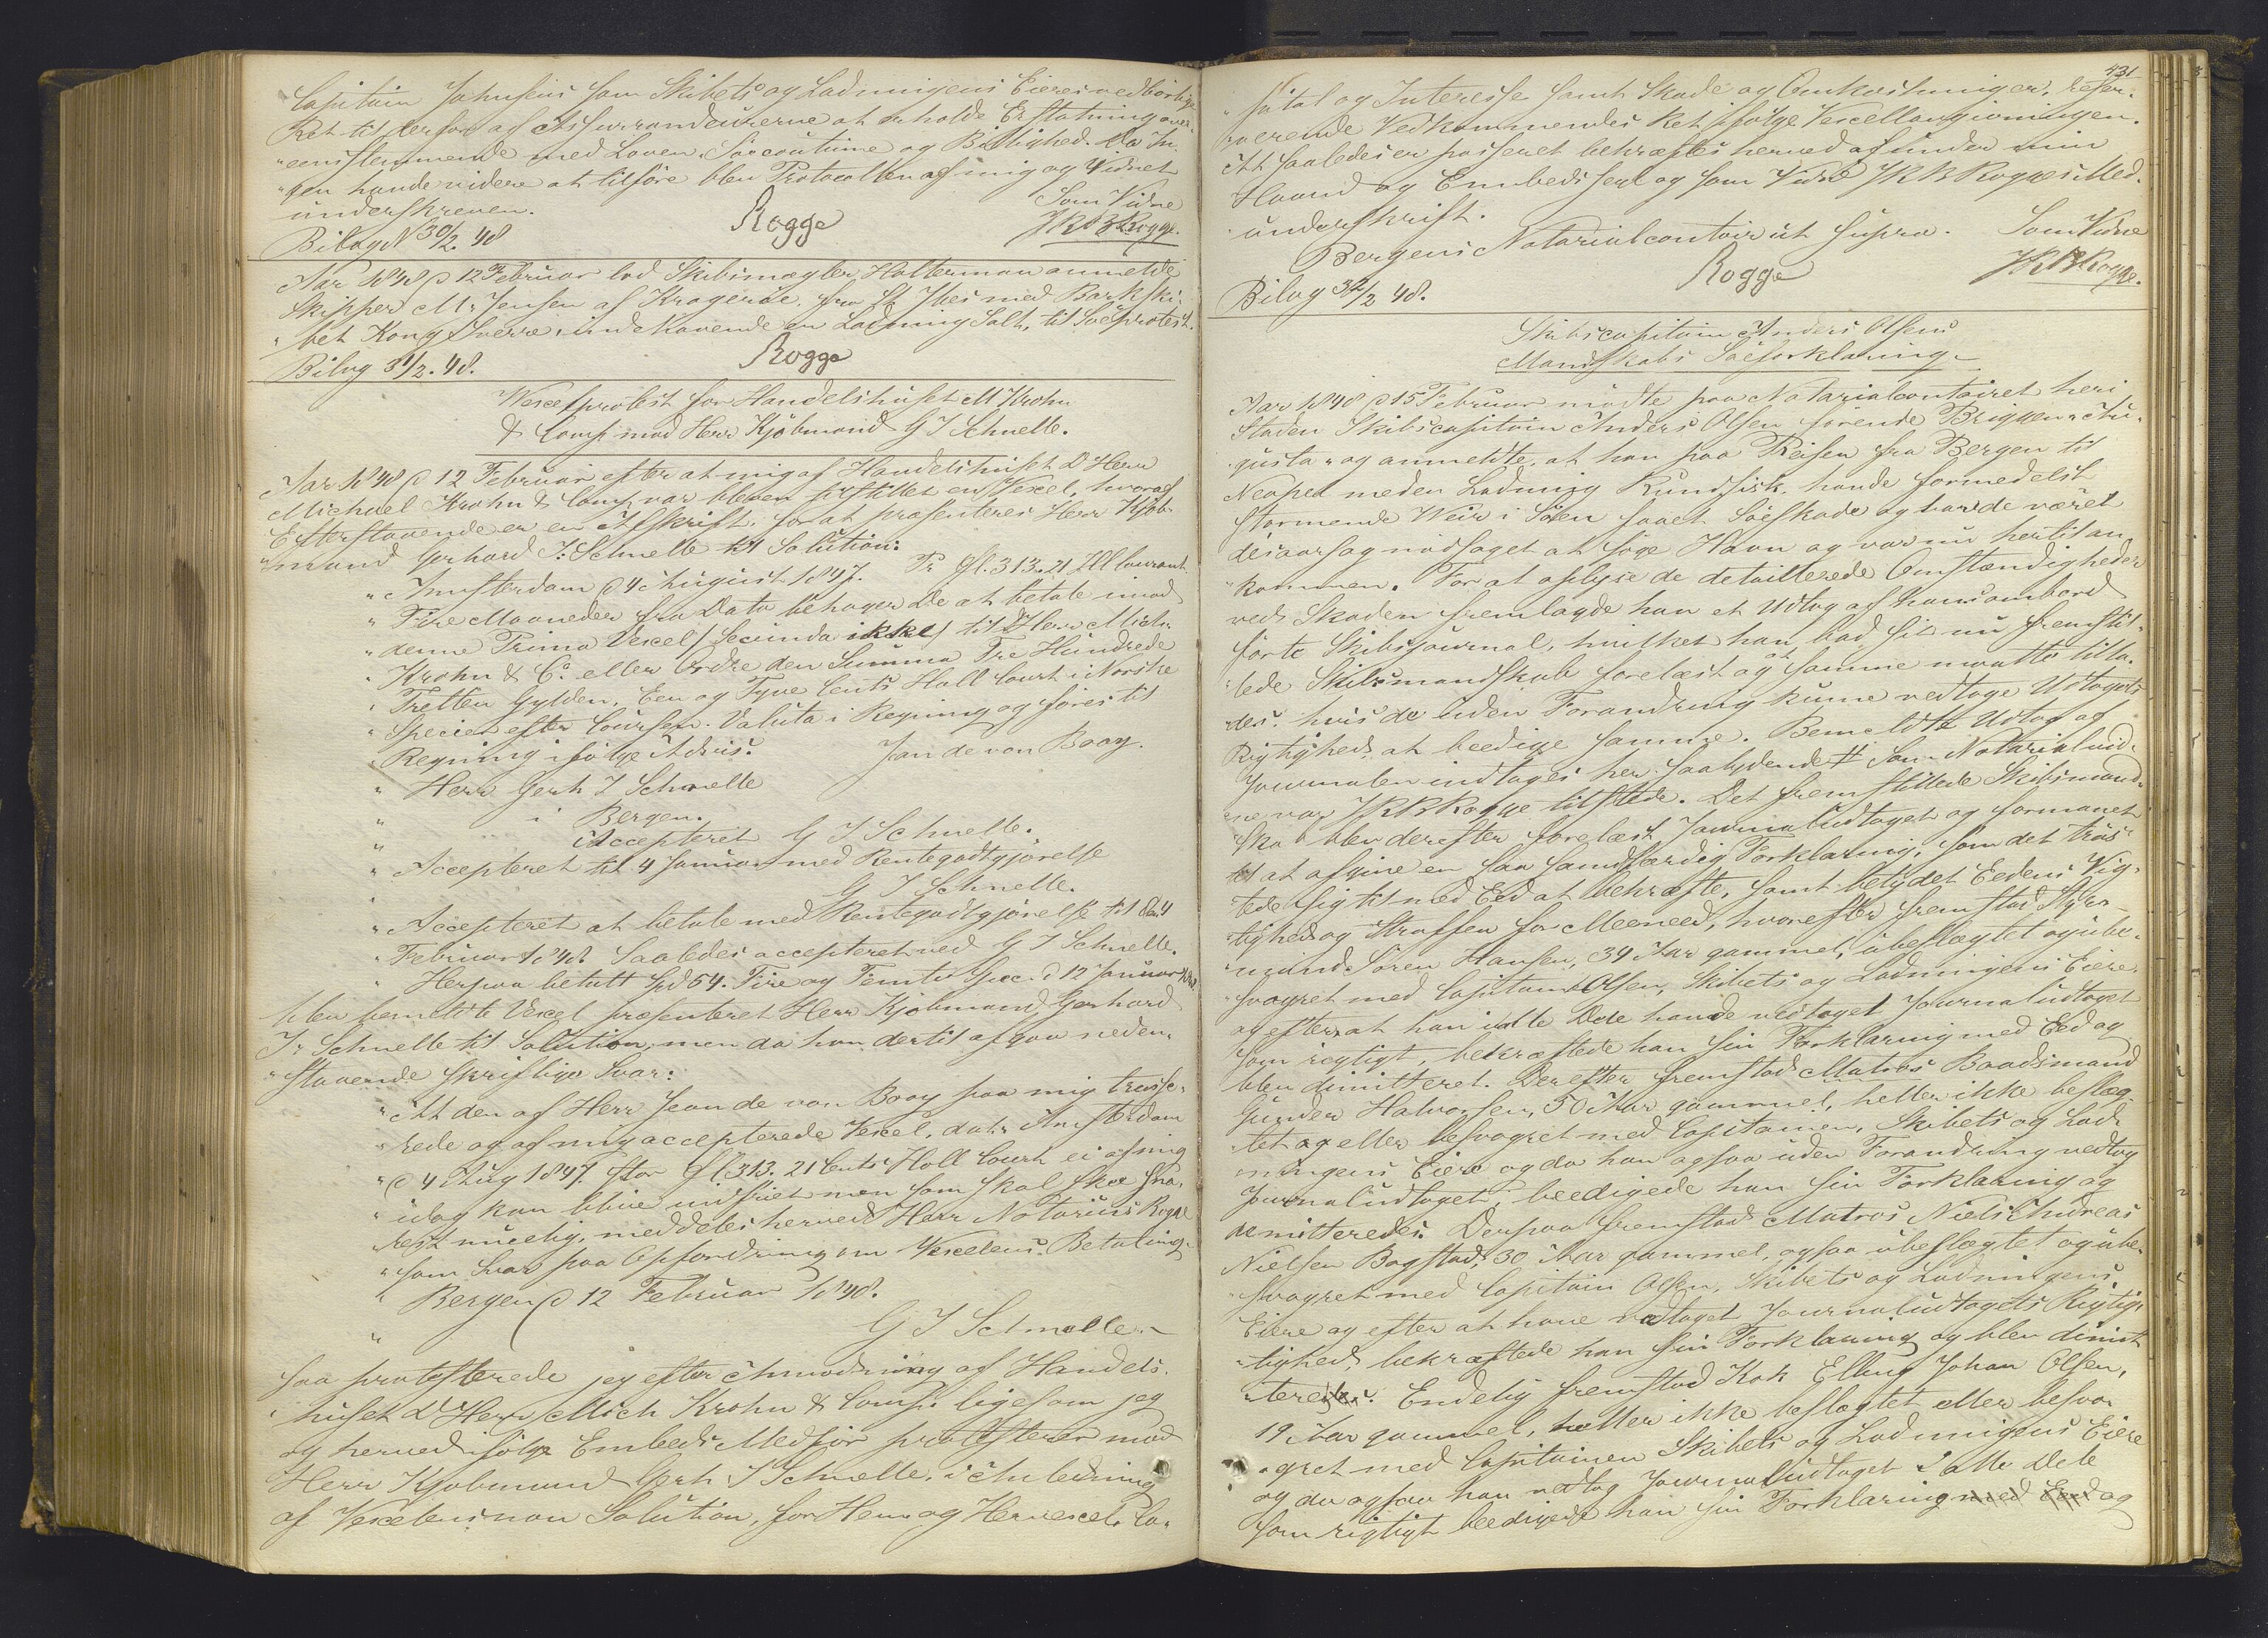 Capitain Johnsens som Skibets og Ladningens Eieres vedbørlige
Ret til derfor af Assurrandeurerne at erholde Erstatning over-
"eensstemmende med Loven, Søecoutume og Billighed. Da In-
"gen havde videre at tilføre blev Protocollen af mig og Vidnet
underskreven.
Som Vidne
Rogge
JKB Rogge.
Bilag N 30/2. 48
Aar 1848 d 12 Februar lod Skibsmægler Halterman anmelde
Skipper M. Jensen af Kragerøe, fra St Ybes med Barkski-
"bet Kong Sverre, indehavende en Ladning Salt, til Søeprotest.
Rogge
Bilag 31/2. 48.
Vexelprotest for Handelshuset M Krohn
& Comp mod Herr Kjøbmand G J Schnelle.
Aar 1848 d 12 Februar efter at mig af Handelshuset D'Herr
Michael Krohn & Comp. var bleven tilstillet en Vexel, hvoraf
Efterstaaende er en Afskrift, for at præsenteres Herr Kjøb-
"mand Gerhard J. Schnelle til Solution:
"Amsterdam d 4 August 1847. Pr fl. 313. 21 Hll Courant.
"Fire Maaneder fra Dato behager De at betale imod
"denne Prima Vexel (Secunda ikke) til D'Herr Mich.
"Krohn & Co. eller Ordre den Summa Tre Hundrede
"Tretten Gylden, Een og Tyve Cents Holl Court i Norske
"Species efter Coursen. Valuta i Regning og føres til
"Regning ifølge Advis.
Jan de van Booy.
"Herr Gerh J Schnelle
" i Bergen.
" Accepteret G J Schnelle.
"Accepteret til 4 Januar med Rentegodtgjørelse
" G J Schnelle.
"Accepteret at betale med Rentegodtgjørelse til den 4
"Februar 1848. Saaledes accepteret ved G J Schnelle.
"Herpaa betalt Spd 54. Fire og Femti Spec. d 12 Januar 1848
blev bemeldte Vexel præsenteret Herr Kjøbmand Gerhard
J. Schnelle til Solution, men da han dertil afgav neden-
"staaende skriftlige Svar:
"At den af Herr Jean de van Booy paa mig trasse-
"rede og af mig accepterede Vexel, dat. Amsterdam
"d 4 Aug 1847. stor fl 313. 21 Cents Holl Court ei af mig
"idag kan blive indfriet men som skal skee sna-
"rest muelig, meddeles herved Herr Notarius Rogge
"som Svar paa Opfordring om Vexelens Betaling.
"Bergen d 12 Februar 1848.
" G J Schnelle.
saa protesterede jeg efter Anmodning af Handels-
"huset D'Herr Mich Krohn & Comp. ligesom jeg
og herved ifølge Embeds Medfør protesterer mod
Herr Kjøbmand Gerh J Schnelle, i Anledning
af Vexelens non Solution, for Hen- og Hervexel, Ca-
431
"pital og Interesse samt Skade og Omkostninger, reser-
"verende Vedkommendes Ret ifølge Vexellovgivningen.
At saaledes er passeret bekræftes herved af under min
Haand og Embedssegl og som Vidne JKB Rogges Med-
"underskrift.
Bergens Notarialcontoir ut supra.
Som Vidne
Rogge
JKB Rogge.
Bilag 32/2 48.
Skibscapitain Anders Olsens
Mandskabs Søeforklaring.
Aar 1848 d 15 Februar mødte paa Notarialcontoiret heri
Staden Skibscapitain Anders Olsen førende Briggen "Au-
"gusta" og anmeldte, at han paa Reisen fra Bergen til
Neapel med en Ladning Rundfisk, havde formedelst
stormende Veir i Søen faaet Søeskade og havde været
desaarsag nødsaget at søge Havn og var nu hertil an-
"kommen. For at oplyse de detaillerede Omstændigheder
ved Skaden fremlagde han et Udtog af hans ombord
førte Skibsjournal, hvilket han bad sit nu fremstil-
"lede Skibsmandskab forelæst og at samme maatte tilla-
"des, hvis de uden Forandring kunne vedtage Udtogets
Rigtighed, at beedige samme. Bemeldte Udtog af
Journalen indtages her saalydende # Som Notarialvid-
"ne var JKB Rogge tilstede. Det fremstillede Skibsmand-
"skab blev derefter forelæst Journaludtoget og formanet
til at afgive en saa sandfærdig Forklaring, som det trøs-
"tede sig til med Eed at bekræfte, samt betydet Eedens Vig-
"tighed og Straffen for Meeneed, hvorefter fremstod Styr-
"mand Søren Hansen, 39 Aar gammel, ubeslægtet og ube-
"svogret med Capitain Olsen, Skibets og Ladningens Eiere
og efterat han i alle Dele havde vedtaget Journaludtoget
som rigtigt, bekræftede han sin Forklaring med Eed og
blev dimitteret. Derefter fremstod Matros Baadsmand
Gunder Halvorsen, 50 Aar gammel, heller ikke beslæg-
"tet og eller besvogret med Capitainen, Skibets og Lad-
"ningens Eiere og da han ogsaa uden Forandring vedtog
Journaludtoget, beedigede han sin Forklaring og
demitteredes. Derpaa fremstod Matros Niels Andreas
Nielsen Bogstad, 30 Aar gammel, ogsaa ubeslægtet og ube-
"svogret med Capitain Olsen, Skibets og Ladningens
Eiere og efter at have vedtaget Journaludtogets Rigtig-
"tighed, bekræftede han sin Forklaring og blev dimit-
"teret. Endelig fremstod Kok Elling Johan Olsen,
19 Aar gammel, heller ikke beslægtet eller besvo-
"gret med Capitainen Skibets og Ladningens Eiere
og da ogsaa han vedtog Journaludtoget i alle Dele
som rigtigt beedigede han sin Forklaring med Eed og